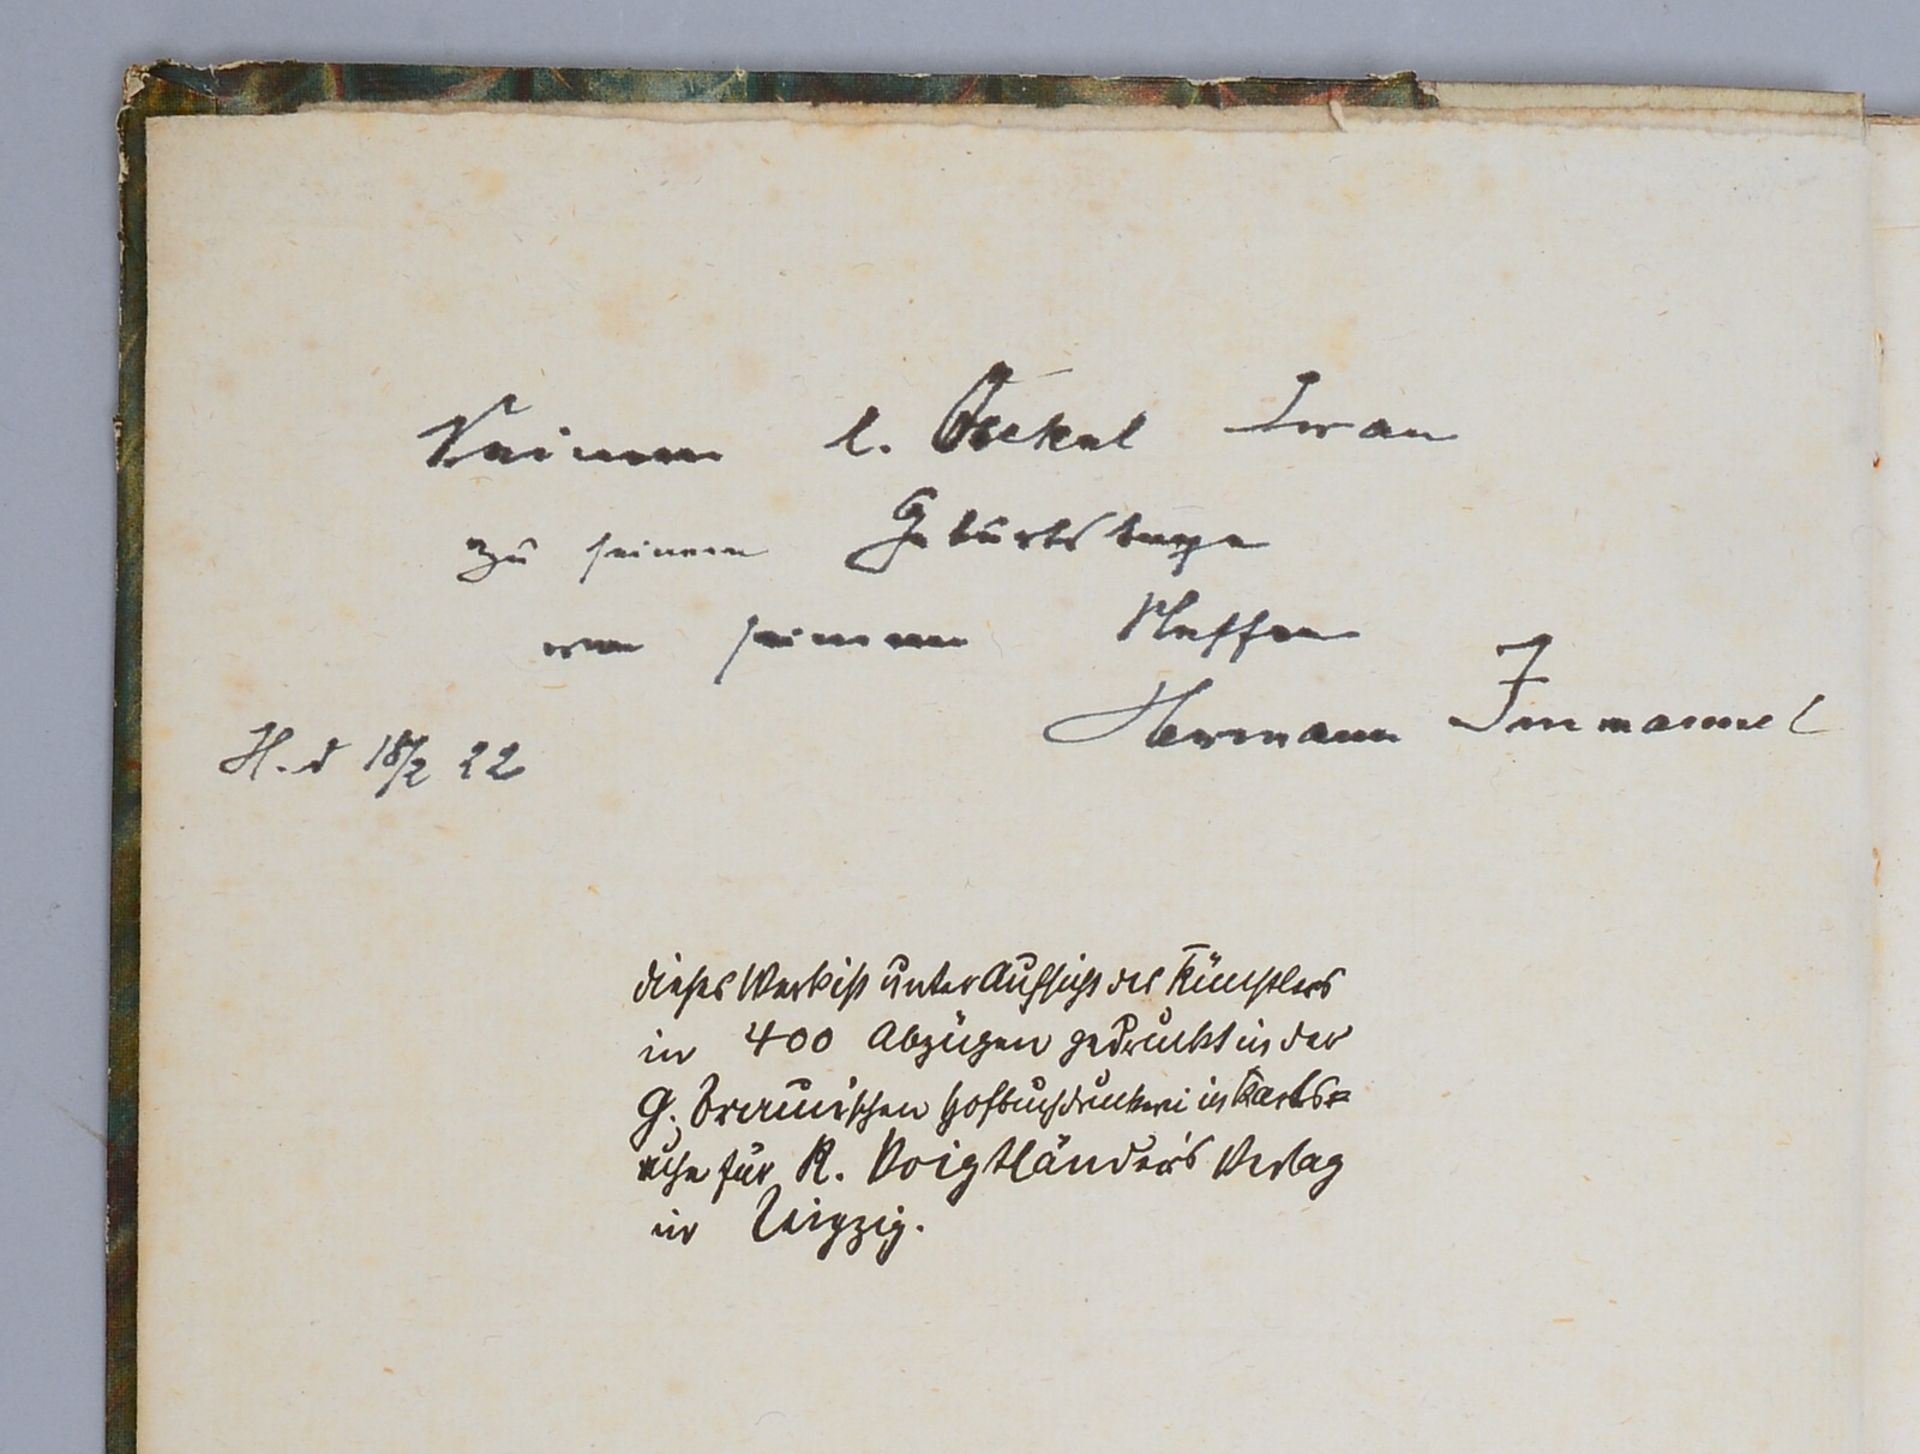 Seinem l. Onkel Iwan
zu seinem Geburtstage
von seinem Neffen
Hermann Immanuel
H. d 18/2 22
Dieses Werk ist unter Aufsicht des Künstlers
in 400 Abzügen gedruckt in der
G. Braun'schen Hofbuchdruckerei in Karls=
ruhe für R. Voigtländer's Verlag
in Leipzig.